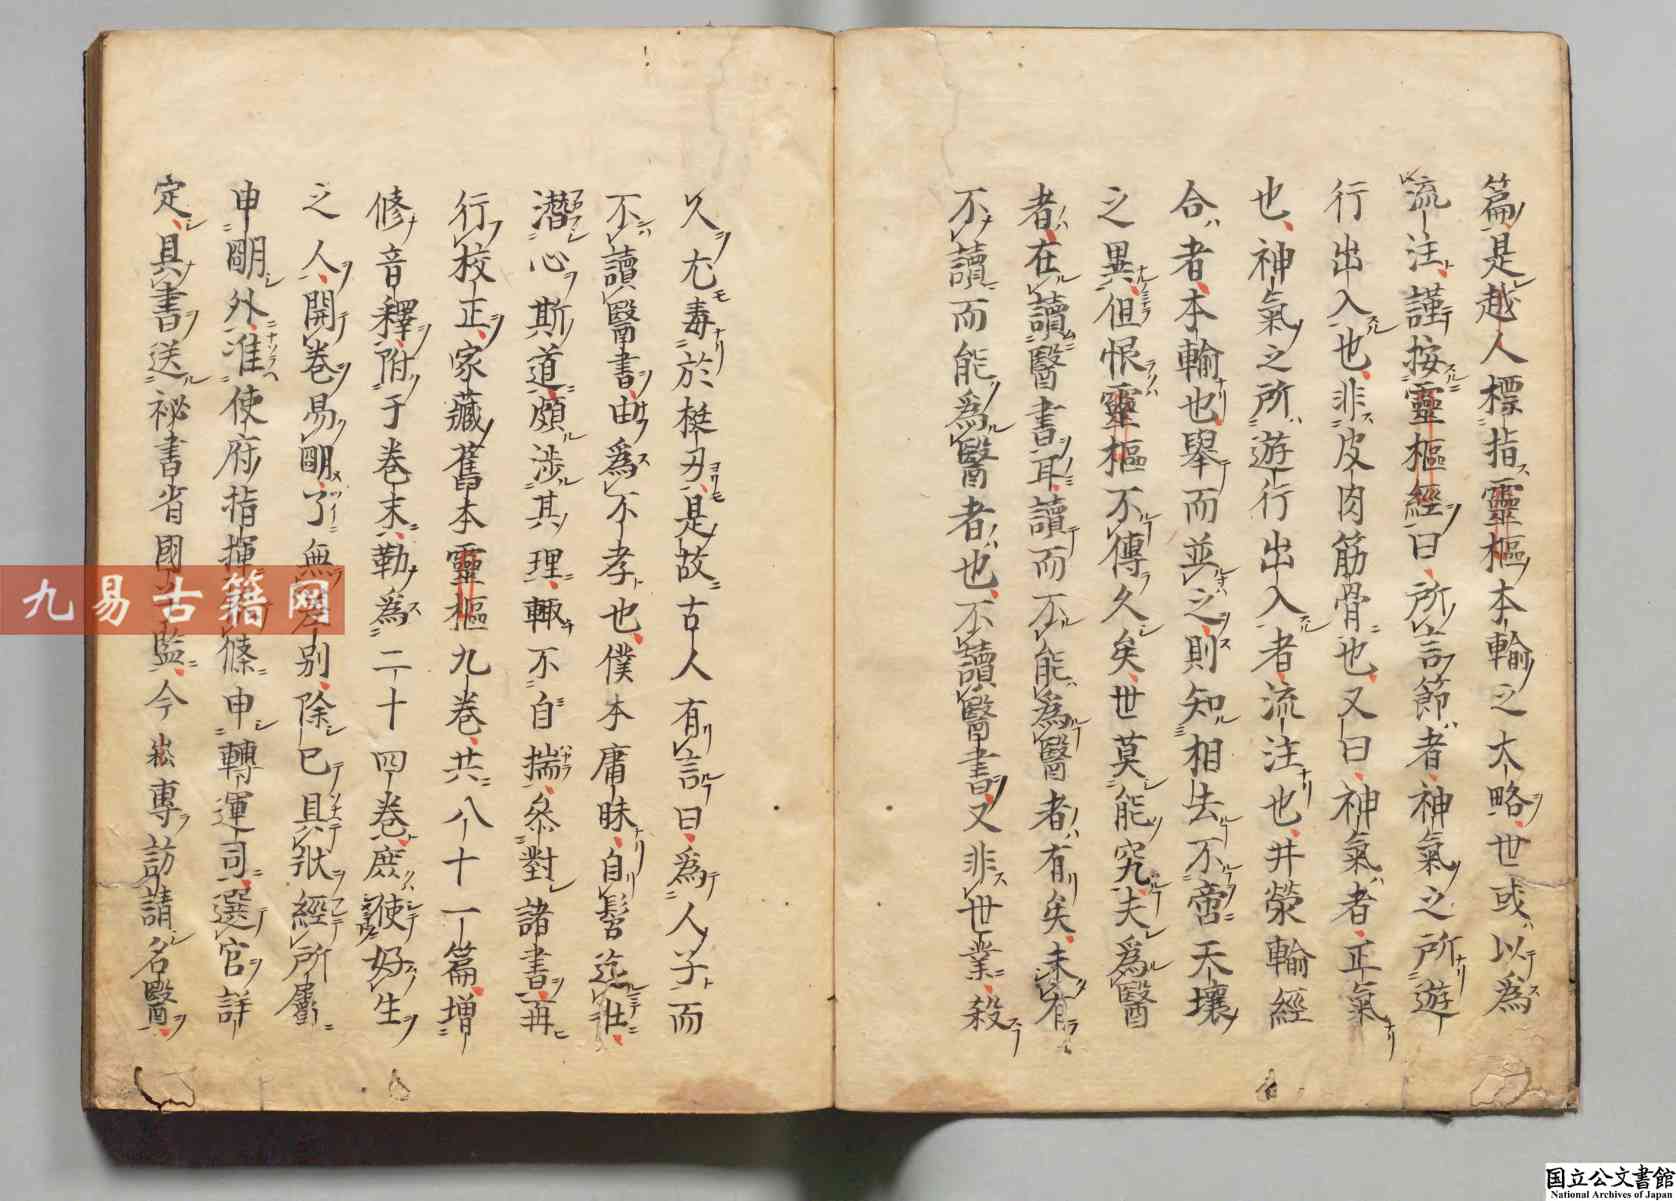 篇是越人標指靈樞本輸之大略世或以為
流注謹按靈樞經曰所言節者神氣之所遊
行出入也非皮肉筋骨也又曰神氣者正氣
也神氣之所遊行出入者流注也井滎輸經
合者本輸也舉而並之則知相去不啻天壤
之異但恨靈樞不傳久矣世莫能究夫為醫
者在讀醫書耳讀而不能為醫者有矣未有
不讀而能為醫者也不讀醫書又非世業殺
人尤毒於梃刃是故古人有言曰為人子而
不讀醫書由為不孝也僕本庸昧自髫迄壯
潛心斯道頗涉其理輙不自揣叅對諸書再
行校正家藏舊本靈樞九卷共八十一篇增
修音釋附于卷末勒為二十四卷庶使好生
之人開卷易明了無差別除已具狀經所屬
申明外准使府指揮條申轉運司選官詳
定具書送祕書省國子監今崧專訪請名醫
九易古籍网
国立公文書館
National Archives of Japan